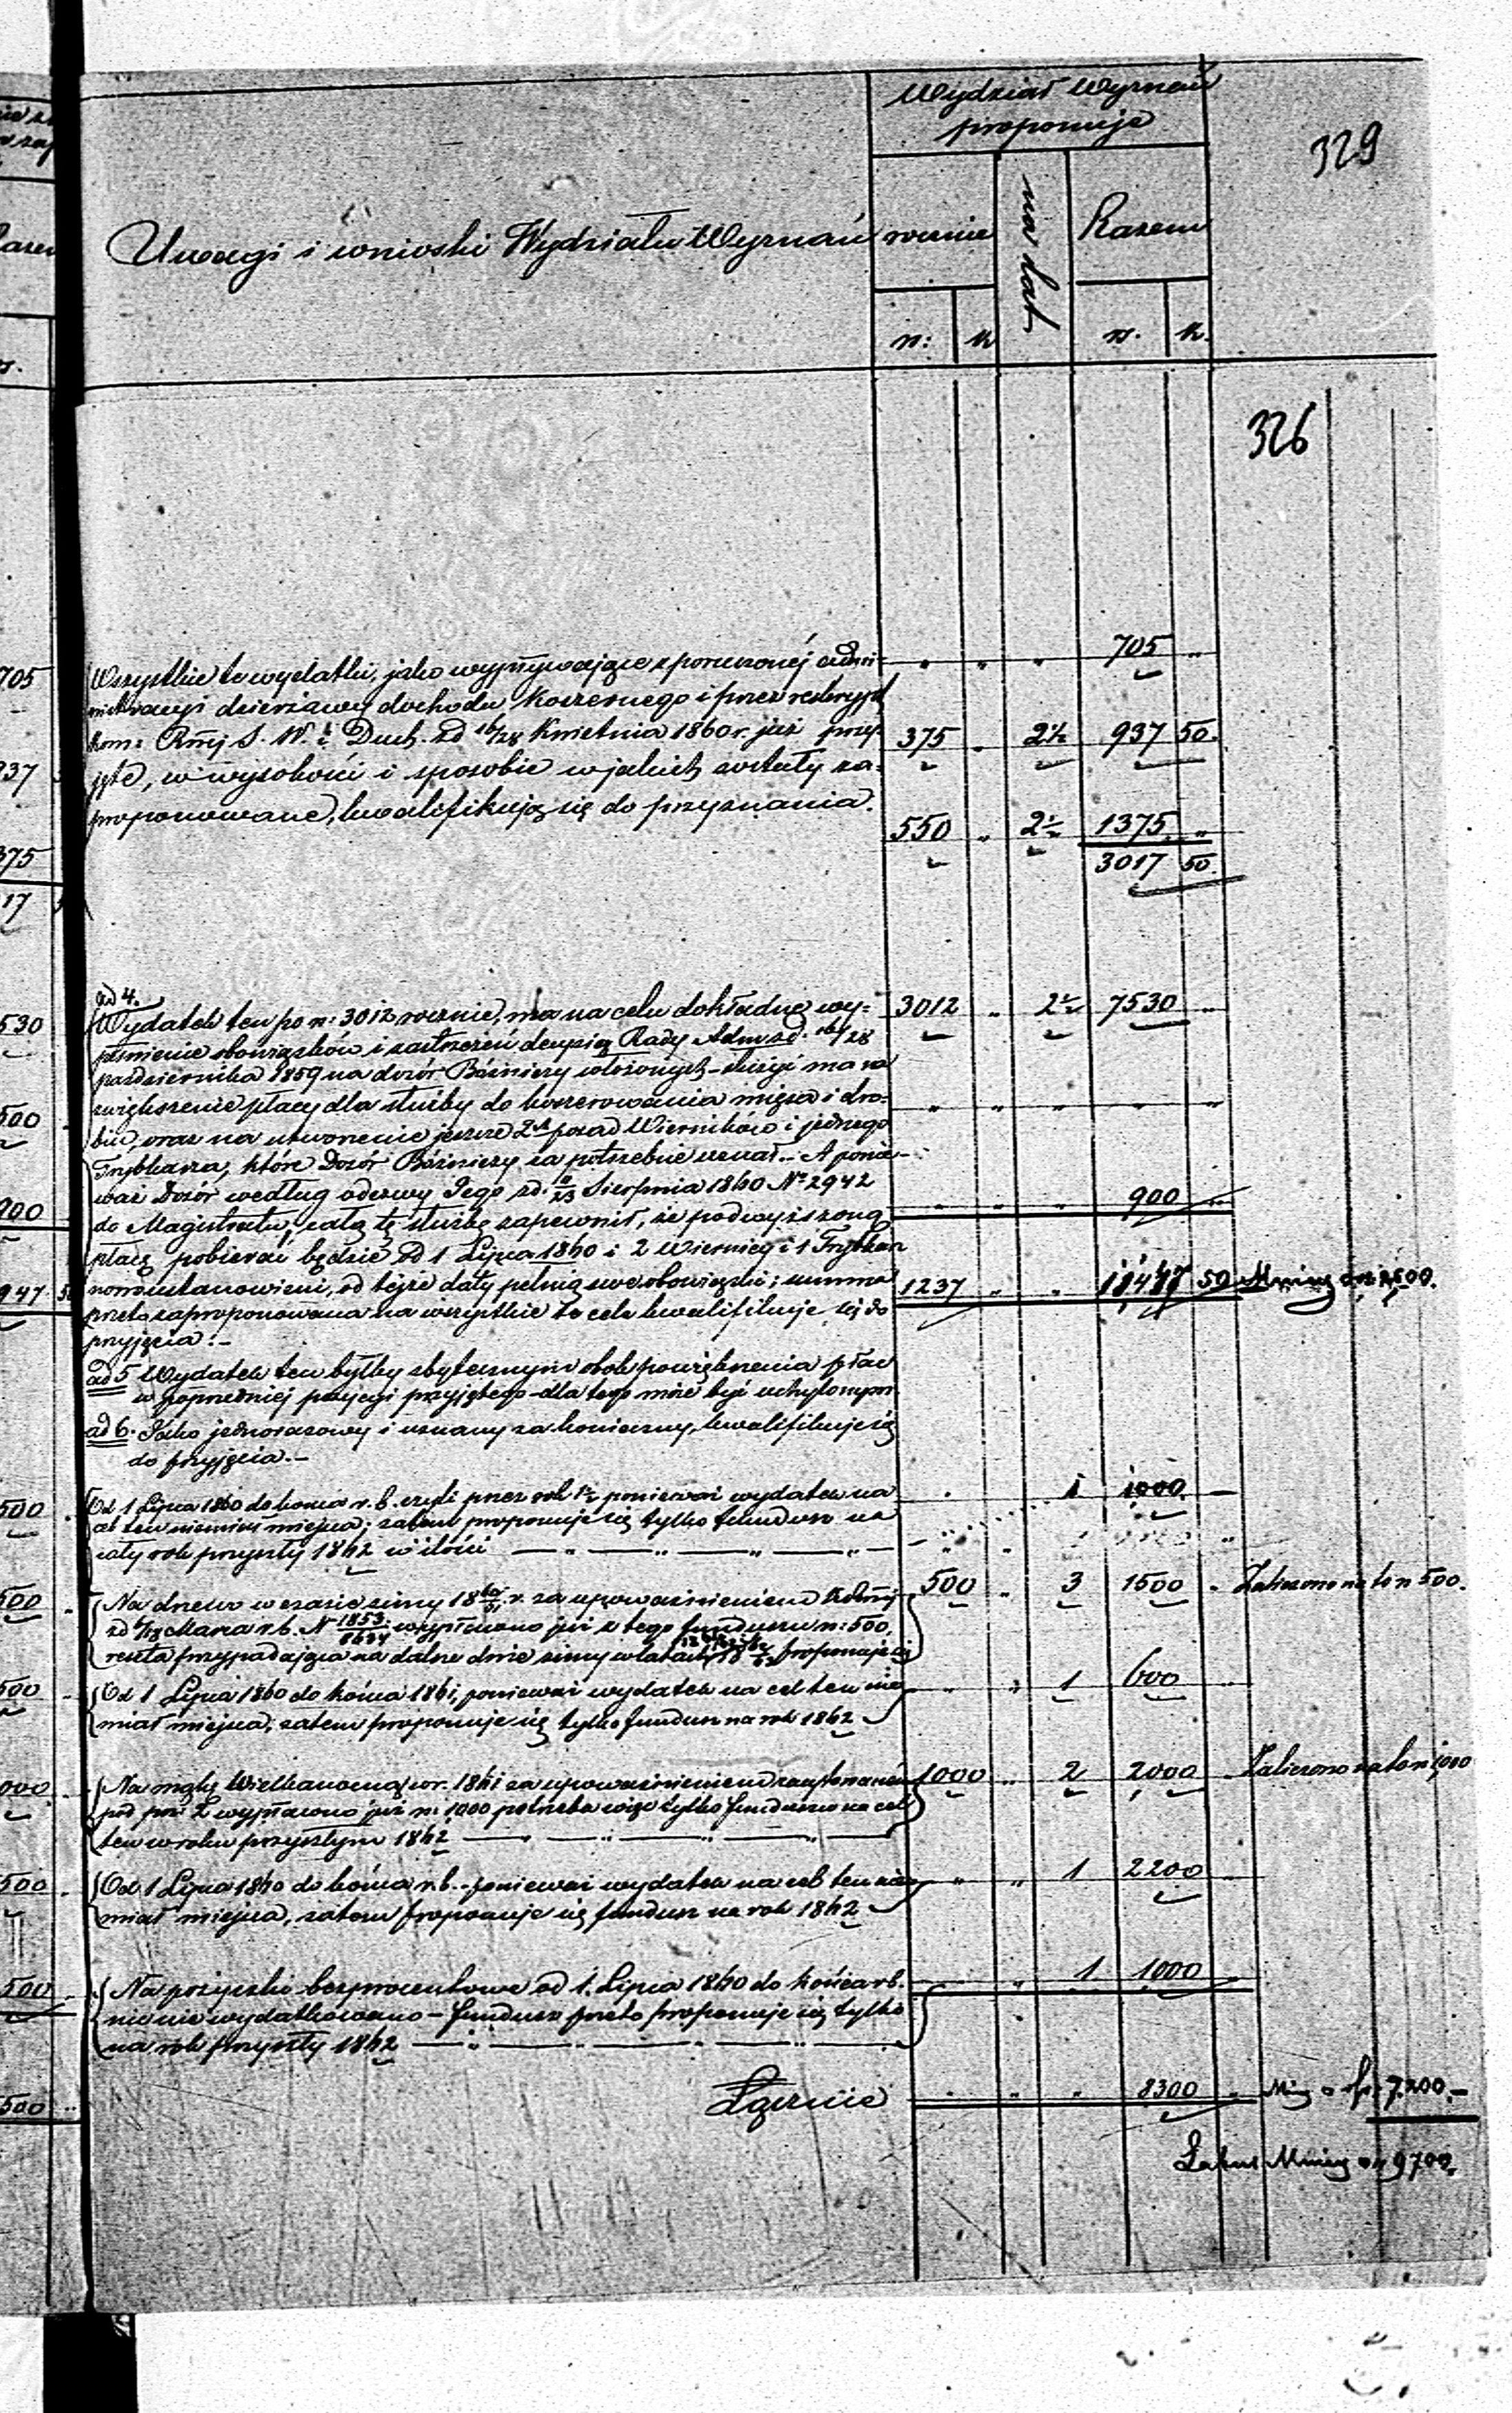 Wydział Wyznań
proponuje
329
Uwagi i wnioski Wydziału Wyznań
rocznie
na lat
Razem
rs: k rs. k.
326
705 „
Wszystkie te wydatki, jako wypływające z poruczonej admi-
nistracyi dzierżawy dochodu koszernego i przez reskrypt
Kom: Rząj S. W. i Duch. zd 16/28 Kwietnia 1860 r. już przy-
jęte, w wysokości i sposobie w jakich zostały za-
proponowane, kwalifikują się do przyznania.
375 „ 2½ 937 50.
550 „ 2½ 1375 „
3017 50.
ad 4.
Wydatek ten po rs: 3012 rocznie, ma na celu dokładne wy-
pełnienie obowiązków i zastrzeżeń decyzją Rady Adm: zd. 16/28
października 1859 na dozór Bóżniczy włożonych – służyć ma na
zwiększenie płacy dla służby do koszerowania mięsa i dro-
biu, oraz na utworzenie jeszcze 2ch posad Wierników i jednego
Trybkarza, które Dozór Bóżniczy za potrzebne uznał. – A ponie-
waż Dozór według odezwy Jego zd. 11/23 Sierpnia 1860 No 2942
do Magistratu, całą tę służbę zapewnił, że podwyższoną
płacę pobierać będzie od 1 Lipca 1860 i 2 Wiernicy i 1 Trybkarz
nowoustanowieni, od tejże daty pełnią swe obowiązki; summa
przeto zaproponowana na wszystkie te cele kwalifikuje się do
przyjęcia: –
3012 „ 2½ 7530 „
„ „ „ „ „
„ „ „ 900 „
1237 „ „ 11447 50 Mniej o rs 2,500.
ad 5 Wydatek ten byłby zbytecznym obok powiększenia płac
w poprzedniej pozycyi przyjętego – dla tego może być uchylonym
ad 6. Jako jednorazowy i uznany za konieczny, kwalifikuje się
do przyjęcia. –
Od 1 Lipca 1860 do końca r. b. czyli przez rok 1½ ponieważ wydatek na
cel ten nie miał miejsca; zatem proponuje się tylko fundusz na
cały rok przyszły 1862 w ilości
1 1000 –
Na drzewo w czasie zimy 1860/61 r. za upoważnieniem
zd 1/13 Marca r. b. N 1853/8634 wypłacono już z tego funduszu rs: 500,
reszta przypadająca na dalsze dwie zimy w latach proponuje się
500 „ 3 1500 „ Zaliczono na to rs 500.
Od 1 Lipca 1860 do końca 1861, ponieważ wydatek na cel ten nie
miał miejsca, zatem proponuje się tylko fundusz na rok 1862
„ „ 1 600 „
Na mąkę Wielkanocną w r. 1861 za upoważnieniem zacytowanem
pod poz 2 wypłacono już rs: 1000 potrzeba więc tylko funduszu na cel
ten w roku przyszłym 1862
1000 „ 2 2000 Zaliczono na to rs 1,000
Od 1 Lipca 1860 do końca r.b. – ponieważ wydatek na cel ten nie
miał miejsca, zatem proponuje się fundusz na rok 1862
„ „ 1 2200 „
Na pożyczki bezprocentowe od 1. Lipca 1860 do końca r b.
nic nie wydatkowano – fundusz przeto proponuje się tylko
na rok przyszły 1862
„ 1 1000 „
Łącznie
„ „ „ 8300 „ Mniej o rs 7,200. –
Latus Mniej o rs 9700.